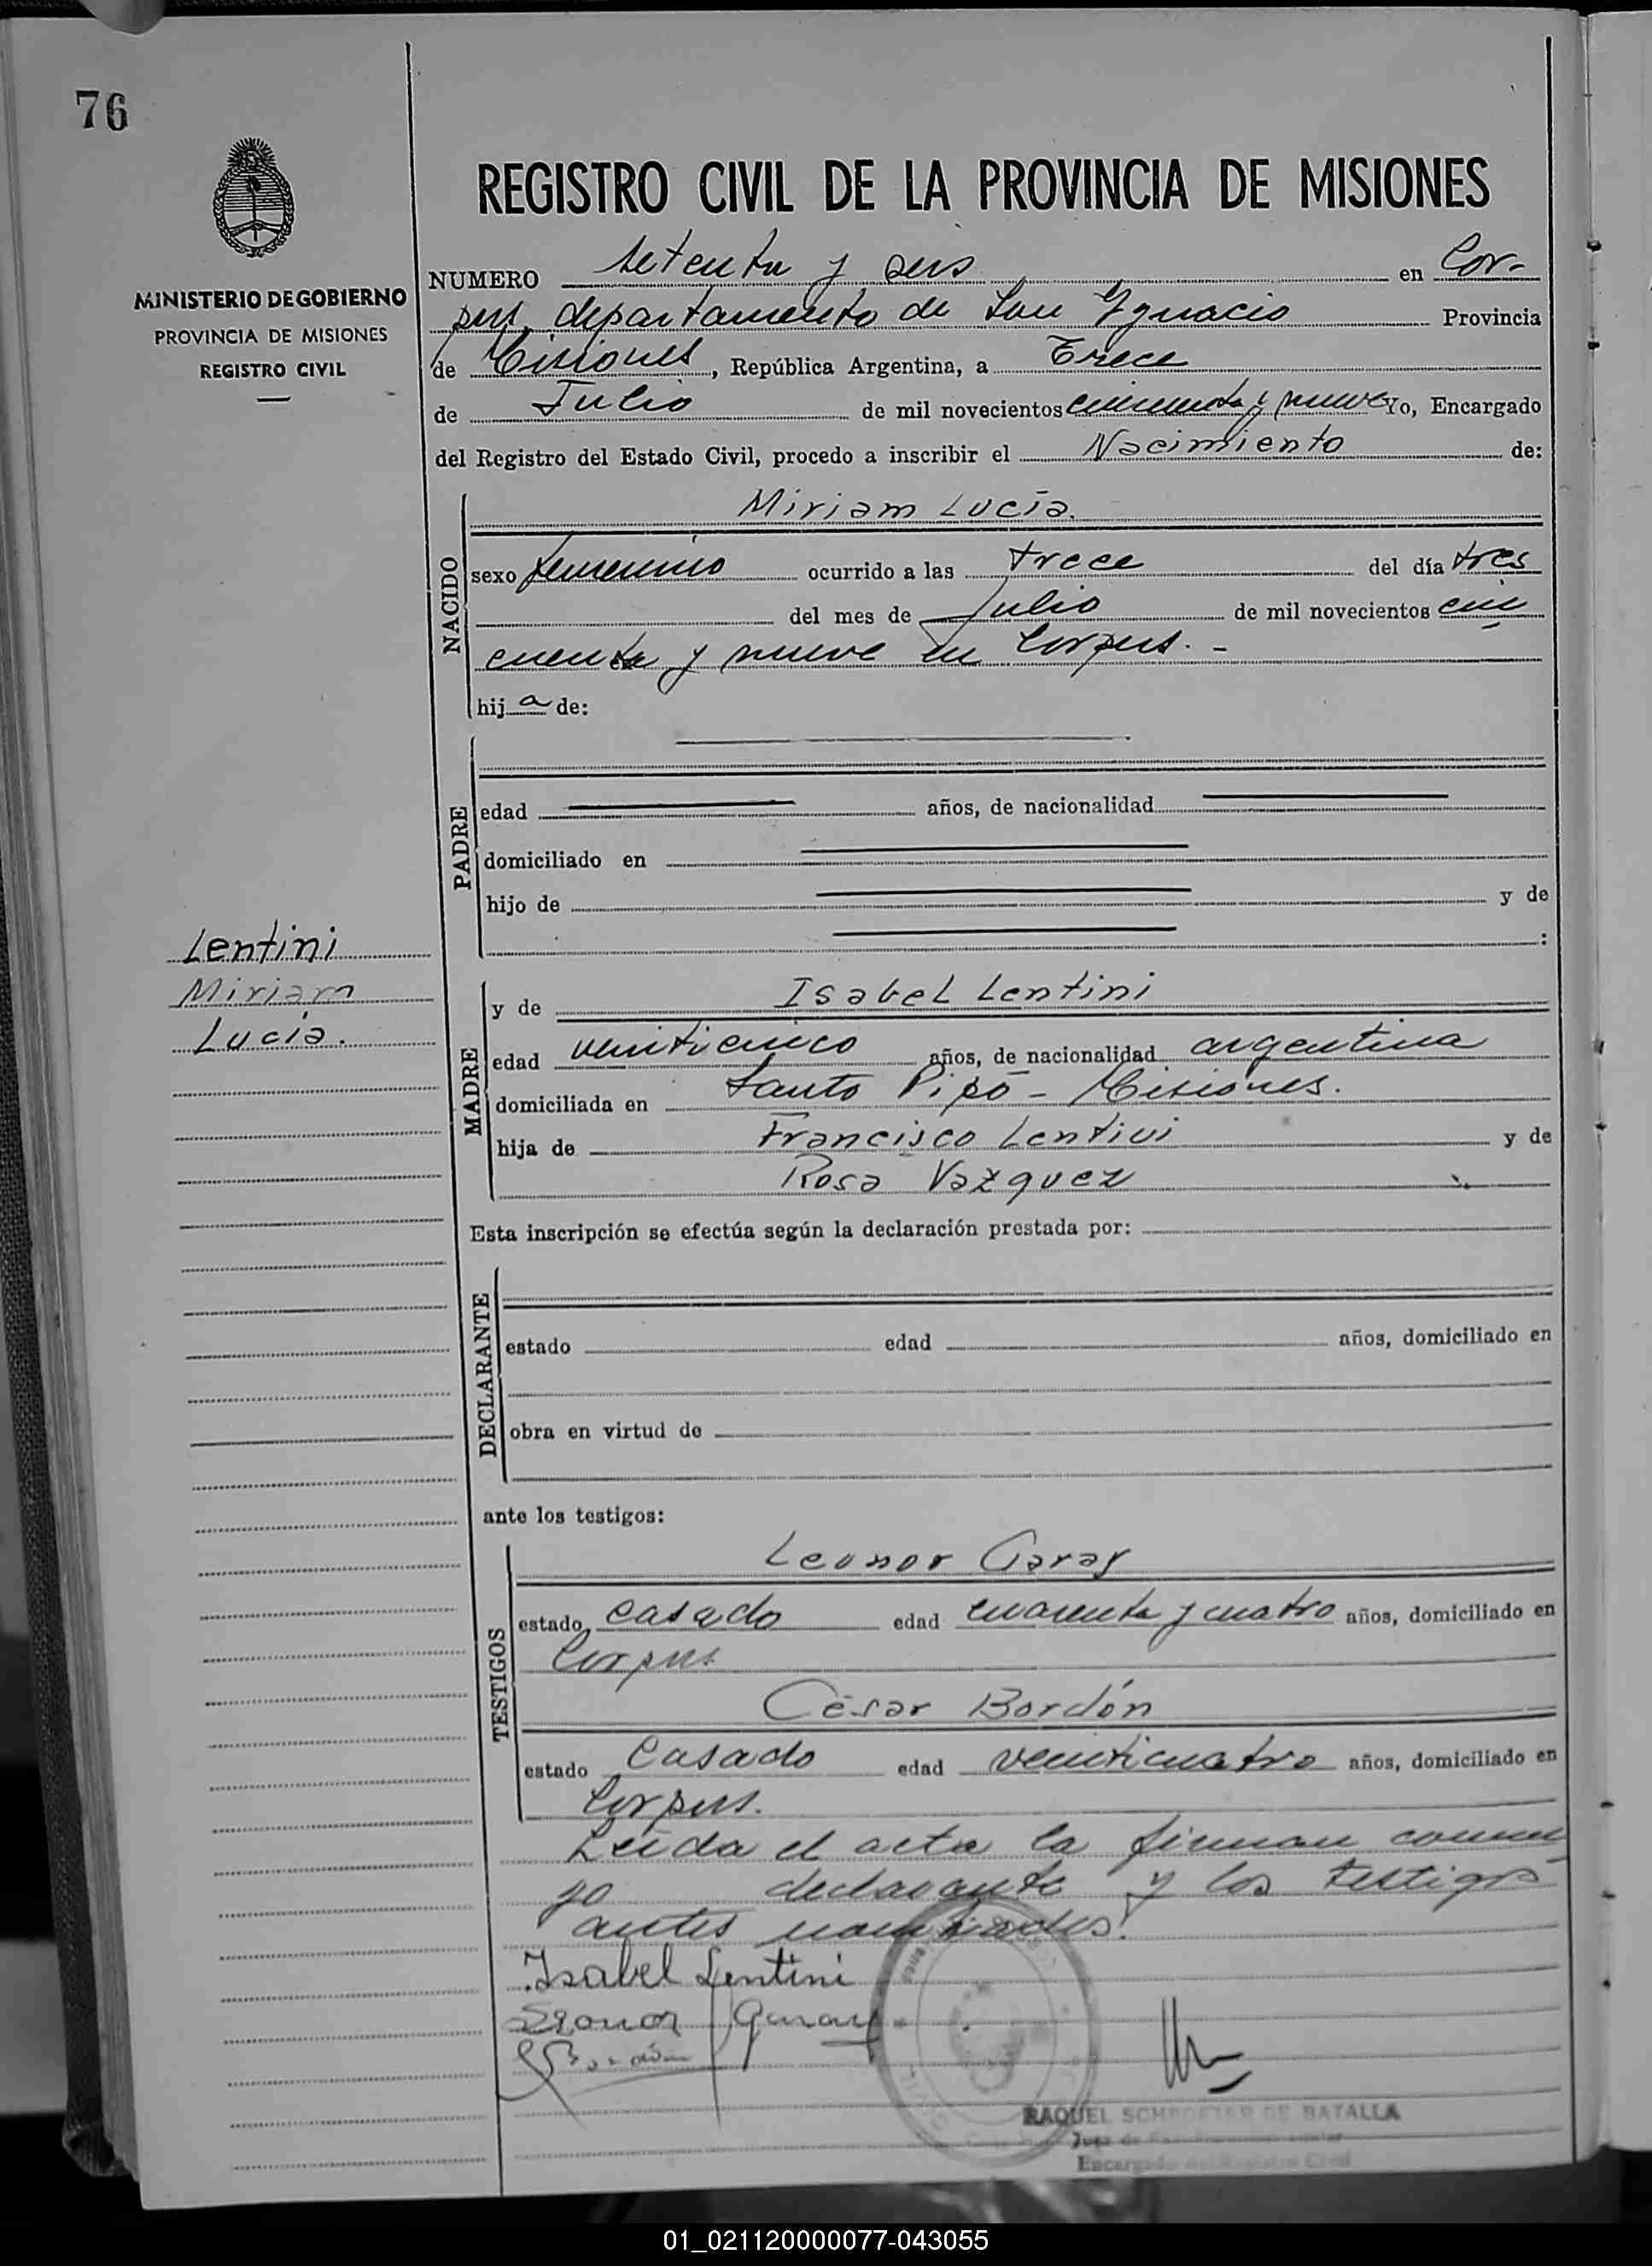 76
MINISTERIO DE GOBIERNO
PROVINCIA DE MISIONES
REGISTRO CIVIL
REGISTRO CIVIL DE LA PROVINCIA DE MISIONES
NUMERO setenta y seis en Cor-
pus, departamento de San Ygnacio Provincia
de Misiones, República Argentina, a Trece
de Julio de mil novecientos cincuenta y nueve Yo, Encargado
del Registro del Estado Civil, procedo a inscribir el Nacimiento de:
NACIDO
Miriam Lucía.
sexo femenino ocurrido a las trece del día tres
del mes de Julio de mil novecientos cin
cuenta y nueve en Corpus. -
hij a de:
PADRE
edad años, de nacionalidad
domiciliado en
hijo de y de
:
Lentini
Miriam
Lucía.
MADRE
y de Isabel Lentini
edad veinticinco años, de nacionalidad argentina
domiciliada en Santo Pipó - Misiones.
hija de Francisco Lentini y de
Rosa Vazquez
Esta inscripción se efectúa según la declaración prestada por:
DECLARANTE
estado edad años, domiciliado en
obra en virtud de
ante los testigos:
TESTIGOS
Leonor Garay
estado casado edad cuarenta y cuatro años, domiciliado en
Corpus
César Bordón
estado Casado edad veinticuatro años, domiciliado en
Corpus.
Leida el acta la firman conmi
go declarante y los testigos
antes nombrados.
Isabel Lentini
Leonor Garay
Bordón
RAQUEL SCHROEDER DE BATALLA
Juez de
Encargada del Registro Civil
01_021120000077-043055